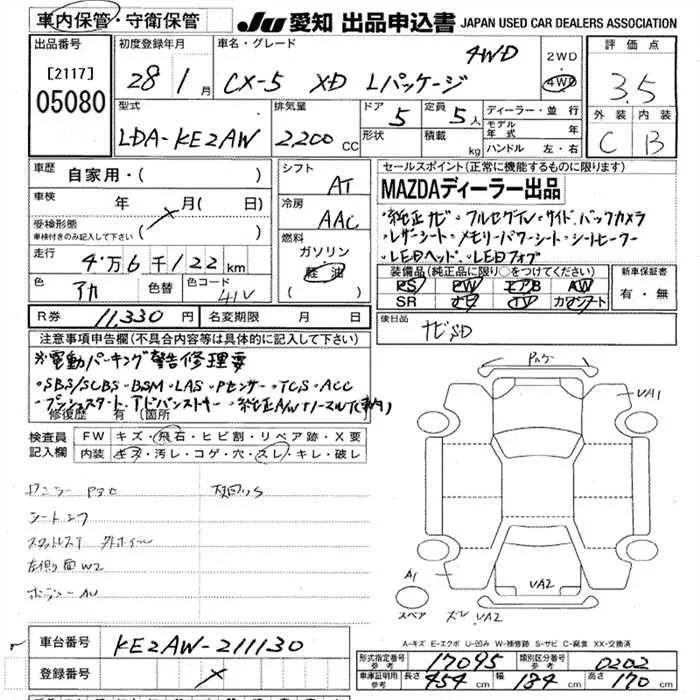 車内保管・守衛保管 JU 愛知 出品申込書 JAPAN USED CAR DEALERS ASSOCIATION
出品番号 初度登録年月 車名・グレード 2WD・4WD 評価点
[2117]
05080
28年1月 CX-5 XD Lパッケージ 4WD 3.5
型式 排気量 ドア 定員 ディーラー・並行 外装 内装
LDA-KE2AW 2200CC 5 5人 モデル年式 年 C B
形状 積載 kg ハンドル 左・右
車歴 自家用・( ) シフト AT セールスポイント(正常に機能するものに限ります)
車検 年 月( 日) 冷房 AAC MAZDAディーラー出品
受検形態 ( )
車検付きのみ記入して下さい
・純正ナビ・フルセグTV・サイド、バックカメラ
・レザーシート・メモリーパワーシート・シートヒーター
・LEDヘッド、LEDフォグ
走行 4万6千122km 燃料 ガソリン 軽油 ( )
色 アカ 色替 色コード 41V
装備品(純正品に限り○をつけてください) 新車保証書
PS PW エアB AW 有・無
SR ナビ TV カワシート
R券 11,330円 名変期限 月 日 後日品 ナビSD
注意事項申告欄(不具合内容等は具体的に記入して下さい)
※電動パーキング警告修理要
・SBS/SCBS・BSM・LAS・Pセンサー・TCS・ACC
・プッシュスタート・アドバンストキー・純正A/W
修復歴 有(箇所
検査員記入欄 FW キズ・飛石・ヒビ割・リペア跡・X要
内装 キズ・汚レ・コゲ・穴・スレ・キレ・破レ
下回りS
左側面W2
VA1
A1
VA2
スペア
VA2
A-キズ E-エクボ U-凹み W-補修跡 S-サビ C-腐食 XX-交換済
車台番号 KE2AW-211130
登録番号
形式指定番号 参考 17095 類別区分番号 参考 0202
車庫証明用 参考 長さ 454cm 幅 184cm 高さ 170cm